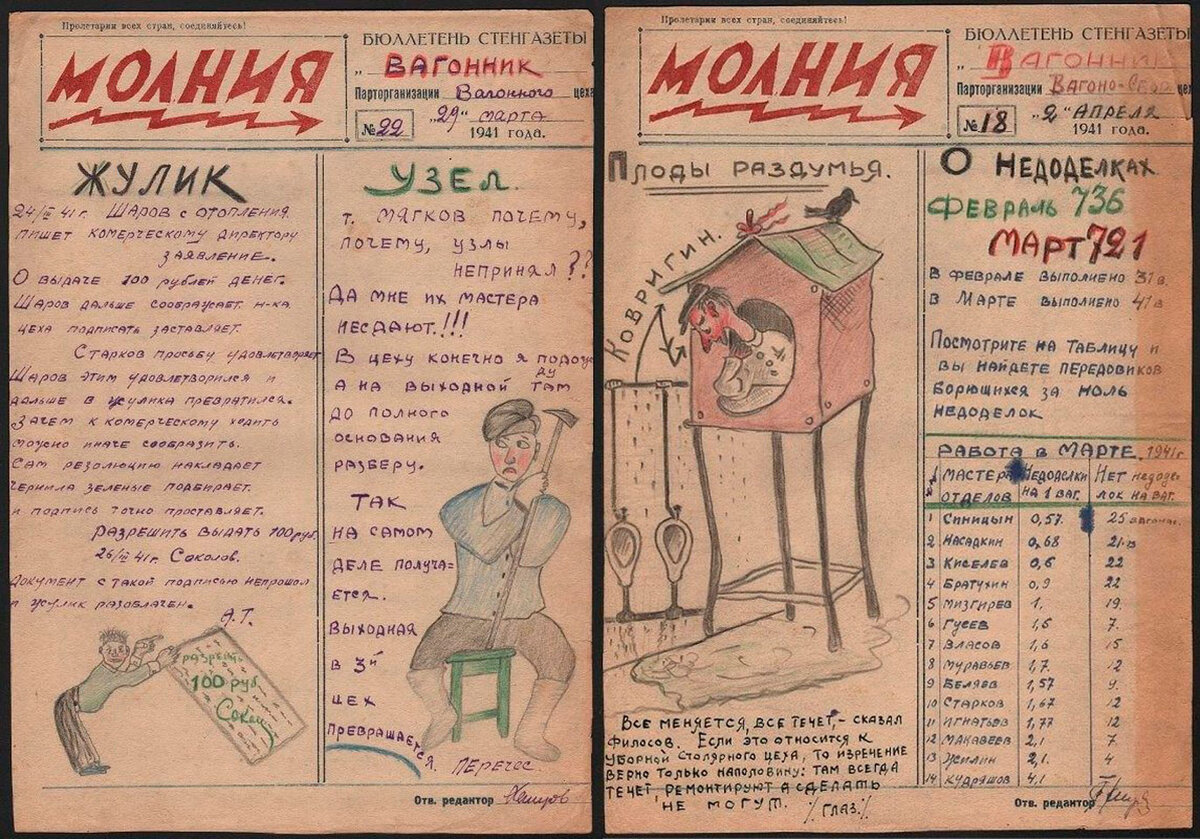 Пролетарии всех стран, соединяйтесь!
МОЛНИЯ
БЮЛЛЕТЕНЬ СТЕНГАЗЕТЫ
„ВАГОННИК
Парторганизации Вагонного цеха
№ 22 „29" марта
1941 года.
ЖУЛИК
24/III 41 г. ШАРОВ С ОТОПЛЕНИЯ
ПИШЕТ КОМЕРЧЕСКОМУ ДИРЕКТОРУ
ЗАЯВЛЕНИЕ.
О ВЫДАЧЕ 100 РУБЛЕЙ ДЕНЕГ.
ШАРОВ ДАЛЬШЕ СООБРАЖАЕТ Н-КА
ЦЕХА ПОДПИСАТЬ ЗАСТАВЛЯЕТ.
СТАРКОВ ПРОСЬБУ УДОВЛЕТВОРЯЕТ
ШАРОВ ЭТИМ УДОВЛЕТВОРИЛСЯ И
ДАЛЬШЕ В ЖУЛИКА ПРЕВРАТИЛСЯ.
ЗАЧЕМ К КОМЕРЧЕСКОМУ ХОДИТЬ
МОЖНО ИНАЧЕ СООБРАЗИТЬ.
САМ РЕЗОЛЮЦИЮ НАКЛАДАЕТ
ЧЕРНИЛА ЗЕЛЕНЫЕ ПОДБИРАЕТ.
И ПОДПИСЬ ТОЧНО ПРОСТАВЛЯЕТ.
РАЗРЕШИТЬ ВЫДАТЬ 100 РУБ.
26/III 41 г. СОКОЛОВ.
ДОКУМЕНТ С ТАКОЙ ПОДПИСЬЮ НЕПРОШОЛ
И ЖУЛИК РАЗОБЛАЧЕН.
А.Т.
РАЗРЕШ.
100 руб.
УЗЕЛ.
Т. МЯГКОВ ПОЧЕМУ,
ПОЧЕМУ, УЗЛЫ
НЕПРИНЯЛ??
ДА МНЕ ИХ МАСТЕРА
НЕСДАЮТ.!!!
В ЦЕХУ КОНЕЧНО Я ПОДОЖ
ДУ
А НА ВЫХОДНОЙ ТАМ
ДО ПОЛНОГО
ОСНОВАНИЯ
РАЗБЕРУ.
ТАК
НА САМОМ
ДЕЛЕ ПОЛУЧА=
ЕТСЯ.
ВЫХОДНАЯ
В 3й
ЦЕХ
ПРЕВРАЩАЕТСЯ.
ПЕРЕЧЕС.
Отв. редактор
Пролетарии всех стран, соединяйтесь!
МОЛНИЯ
БЮЛЛЕТЕНЬ СТЕНГАЗЕТЫ
„ВАГОННИК
Парторганизации ВАГОНО-СБОР цех
№ 18 „2" АПРЕЛЯ
1941 года.
ПЛОДЫ РАЗДУМЬЯ.
КОВРИГИН.
ВСЕ МЕНЯЕТСЯ, ВСЕ ТЕЧЕТ,- СКАЗАЛ
ФИЛОСОВ. ЕСЛИ ЭТО ОТНОСИТСЯ К
УБОРНОЙ СТОЛЯРНОГО ЦЕХА, ТО ИЗРЕЧЕНИЕ
ВЕРНО ТОЛЬКО НАПОЛОВИНУ: ТАМ ВСЕГДА
ТЕЧЕТ РЕМОНТИРУЮТ А СДЕЛАТЬ
НЕ МОГУТ. ⁒ГЛАЗ⁒
О НЕДОДЕЛКАХ
ФЕВРАЛЬ 736
МАРТ 721
В ФЕВРАЛЕ ВЫПОЛНЕНО 37 в.
В МАРТЕ ВЫПОЛНЕНО 41 в
ПОСМОТРИТЕ НА ТАБЛИЦУ И
ВЫ НАЙДЕТЕ ПЕРЕДОВИКОВ
БОРЮЩИХСЯ ЗА НОЛЬ
НЕДОДЕЛОК
РАБОТА В МАРТЕ 1941 г
МАСТЕРА ОТДЕЛОВ НЕДОДЕЛКИ НА 1 ВАГ. НЕТ НЕДОДЕЛОК НА ВАГ.
1 СИНИЦЫН 0,57. 25 вагонах.
2 НАСАДКИН 0,68 21
3 КИСЕЛЕВ 0,6 22
4 БРАТУХИН 0,9 22
5 МИЗГИРЕВ 1, 19.
6 ГУСЕВ 1,5 7.
7 ВЛАСОВ 1,6 15
8 МУРАВЬЕВ 1,7. 12
9 БЕЛЯЕВ 1,57 9.
10 СТАРКОВ 1,67 12
11 ИГНАТЬЕВ 1,77 12
12 МАКАВЕЕВ 2,1 7
13 ЖИЛИН 2,1. 4
14 КУДРЯШОВ 4,1
Отв. редактор